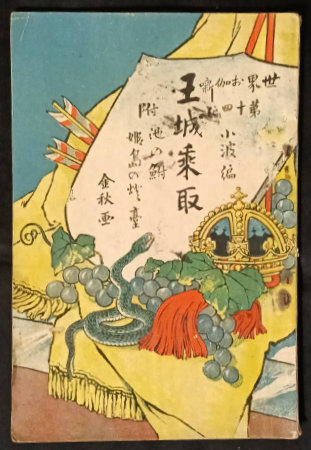 世界お伽噺
第十四
小波編
王城乗取
附 池の鮒
姫島の燈臺
金秋画